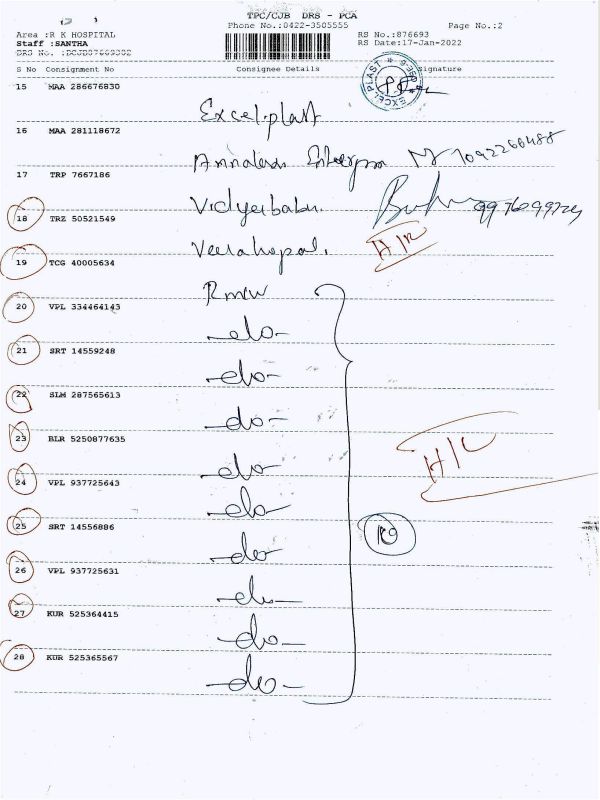 TPC/CJB DRS - PCA
Phone No.:0422-3505555 Page No.:2
Area :R K HOSPITAL RS No.:876693
Staff :SANTHA RS Date:17-Jan-2022
DRS No.
S No Consignment No Consignee Details Signature
EXCEL PLAST
15 MAA 286676830
Excel plast
16 MAA 281118672
17 TRP 7667186
Vidyababu
18 TRZ 50521549
Veerahopal. H/R
19 TCG 40005634
20 VPL 334464143
-do-
21 SRT 14559248
-do-
22 SLM 287565613
-do-
23 BLR 5250877635
-do- H/R
24 VPL 937725643
-do-
25 SRT 14556886
-do- 10
26 VPL 937725631
-do-
27 KUR 525364415
-do-
28 KUR 525365567
-do-